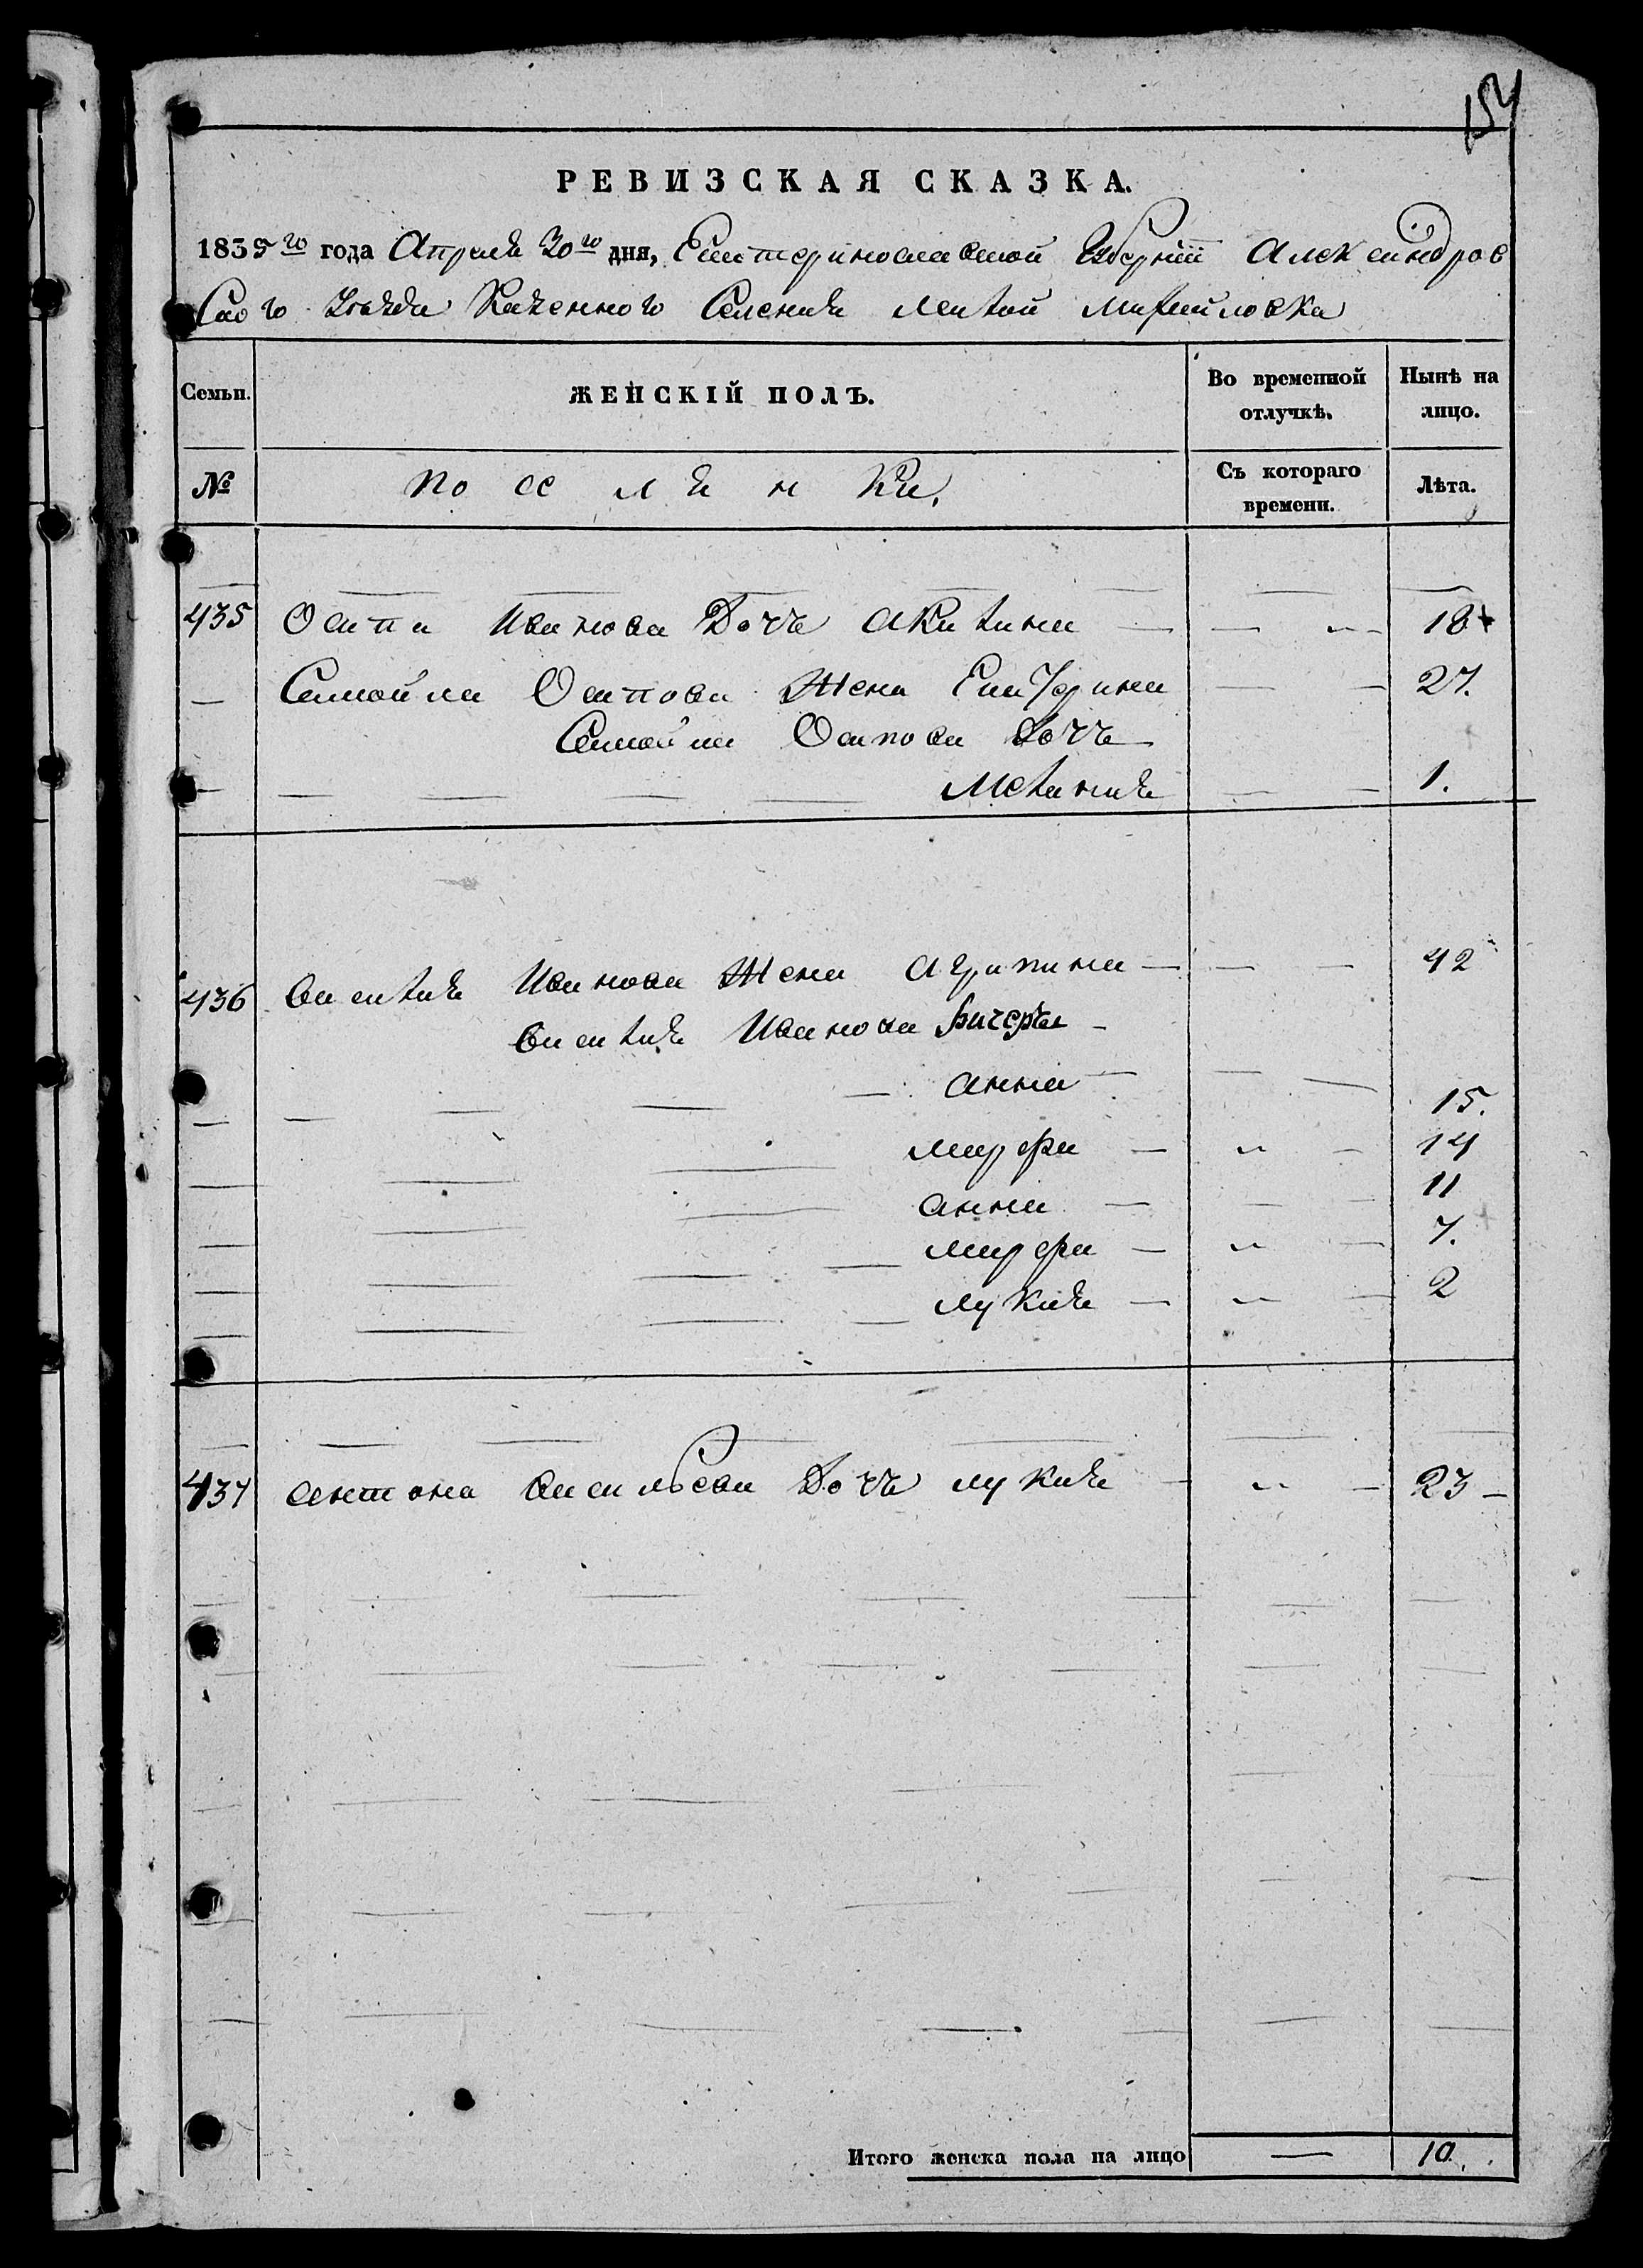 154
РЕВИЗСКАЯ СКАЗКА.
1835го года Апреля 30го дня, Екатеринославской Губернии Александров
Ского Уезда Казенного Селения Малой Михайловка
Семьи.
ЖЕНСКІЙ ПОЛЪ.
Во временной отлучкѣ.
Нынѣ на лицо.
№
Съ котораго времени.
Лѣта.
435 Осипа Иванова Дочь Акилина 18
Самойла Осипова Жена Екатерина 27.
Самойла Осипова Дочь
Мелания 1.
436 Василия Иванова Жена Агрипина 42
Василия Иванова
Анна 15.
Марфа 14
Анна 11
Марфа 7.
Лукия 2
437 Антона Васильева Дочь Лукия 23
Итого женска пола на лицо — 10.